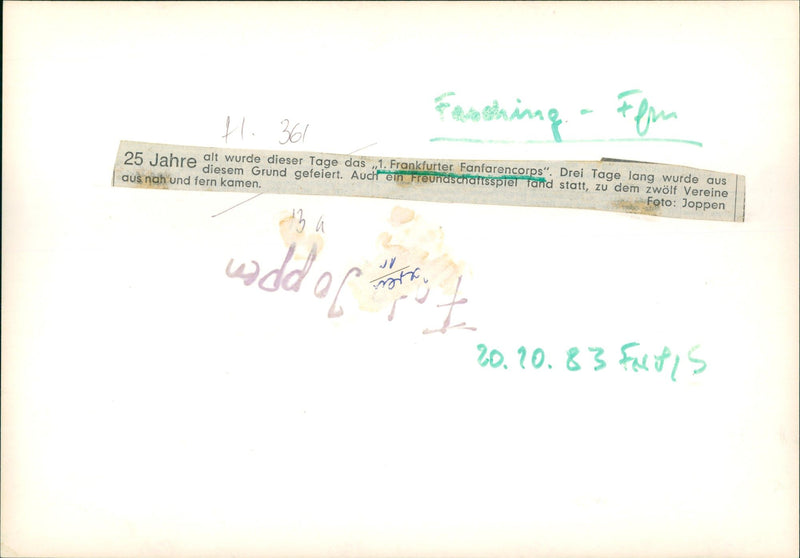 Fasching - Ffm
361
25 Jahre alt wurde dieser Tage das „1. Frankfurter Fanfarencorps". Drei Tage lang wurde aus
diesem Grund gefeiert. Auch ein Freundschaftsspiel fand statt, zu dem zwölf Vereine
aus nah und fern kamen.
Foto: Joppen
13 a
Joppen
20.10.83